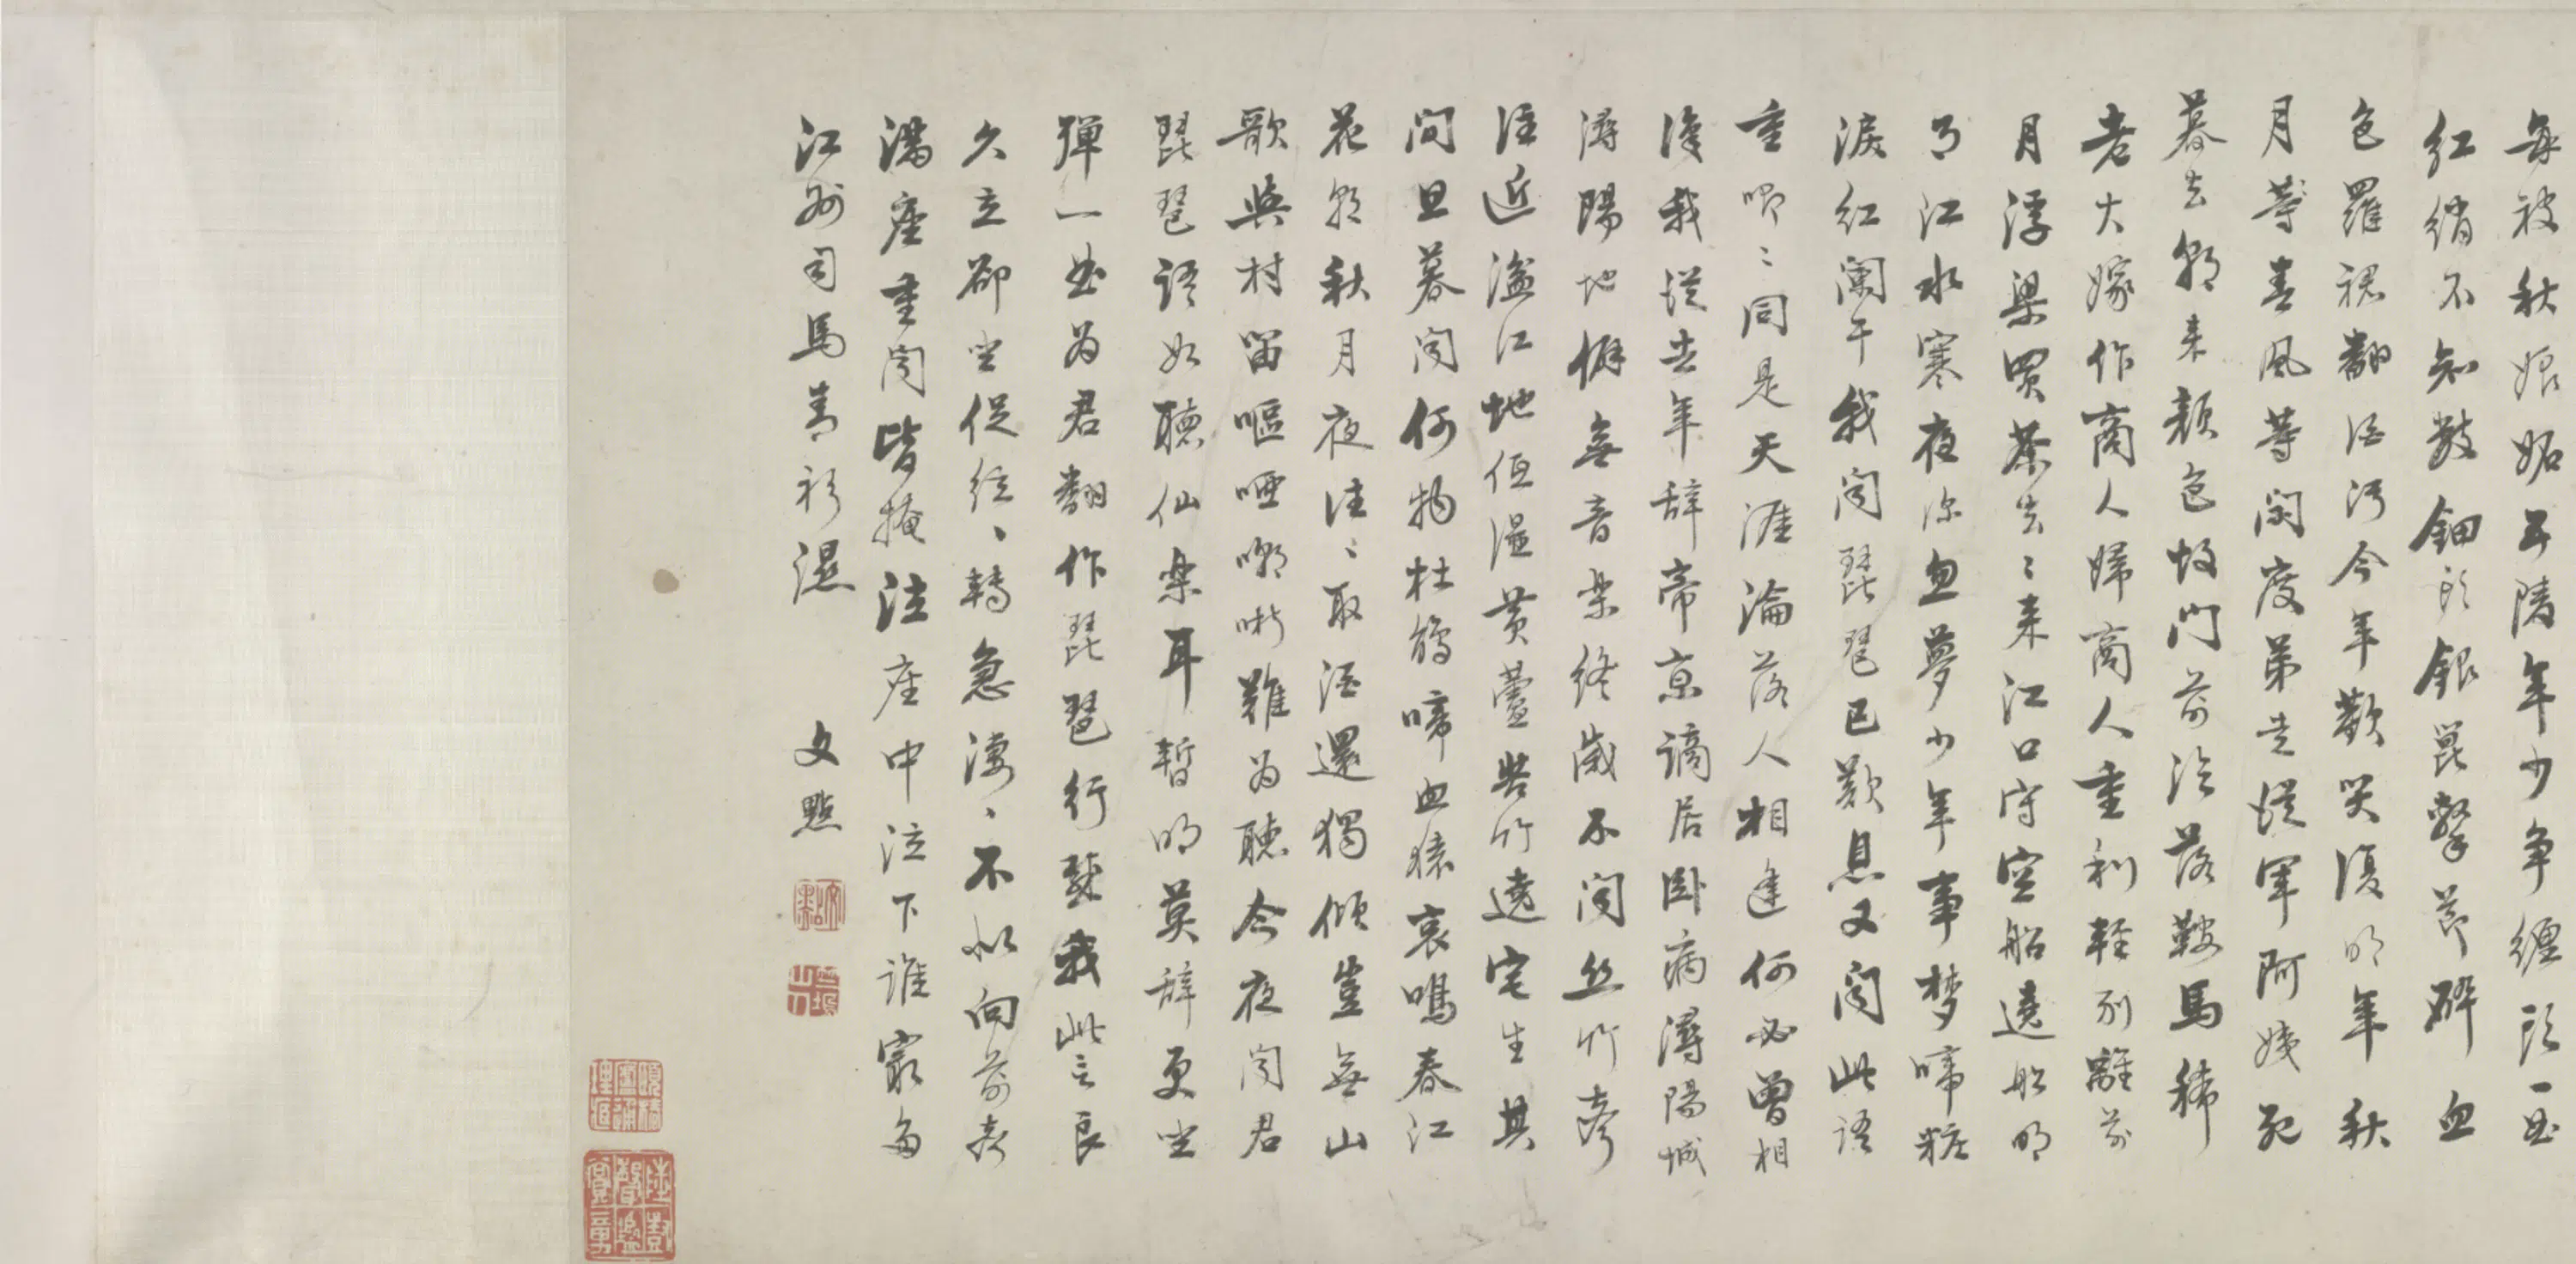 每被秋娘妬五陵年少争纏頭一曲
紅綃不知數鈿頭銀篦擊節碎血
色羅裙翻酒污今年歡笑復明年秋
月等春風等閑度弟走從軍阿姨死
暮去朝来顏色故門前冷落鞍馬稀
老大嫁作商人婦商人重利輕別離前
月浮梁買茶去〻来江口守空船遶船明
月江水寒夜深忽夢少年事梦啼粧
淚紅闌干我聞琵琶已歎息又聞此語
重唧〻同是天涯淪落人相逢何必曾相
識我從去年辞帝京謫居卧病潯陽城
潯陽地僻無音樂終歲不聞丝竹聲
住近湓江地低濕黄蘆苦竹遶宅生其
間旦暮聞何物杜鵑啼血猿哀鳴春江
花朝秋月夜往〻取酒還獨傾豈無山
歌與村笛嘔啞嘲哳難為聽今夜聞君
琵琶語如聽仙樂耳暫明莫辞更坐
彈一曲為君翻作琵琶行感我此言良
久立卻坐促絃〻轉急凄〻不似向前聲
滿座重聞皆掩泣座中泣下誰最多
江州司馬青衫濕
文點
文點